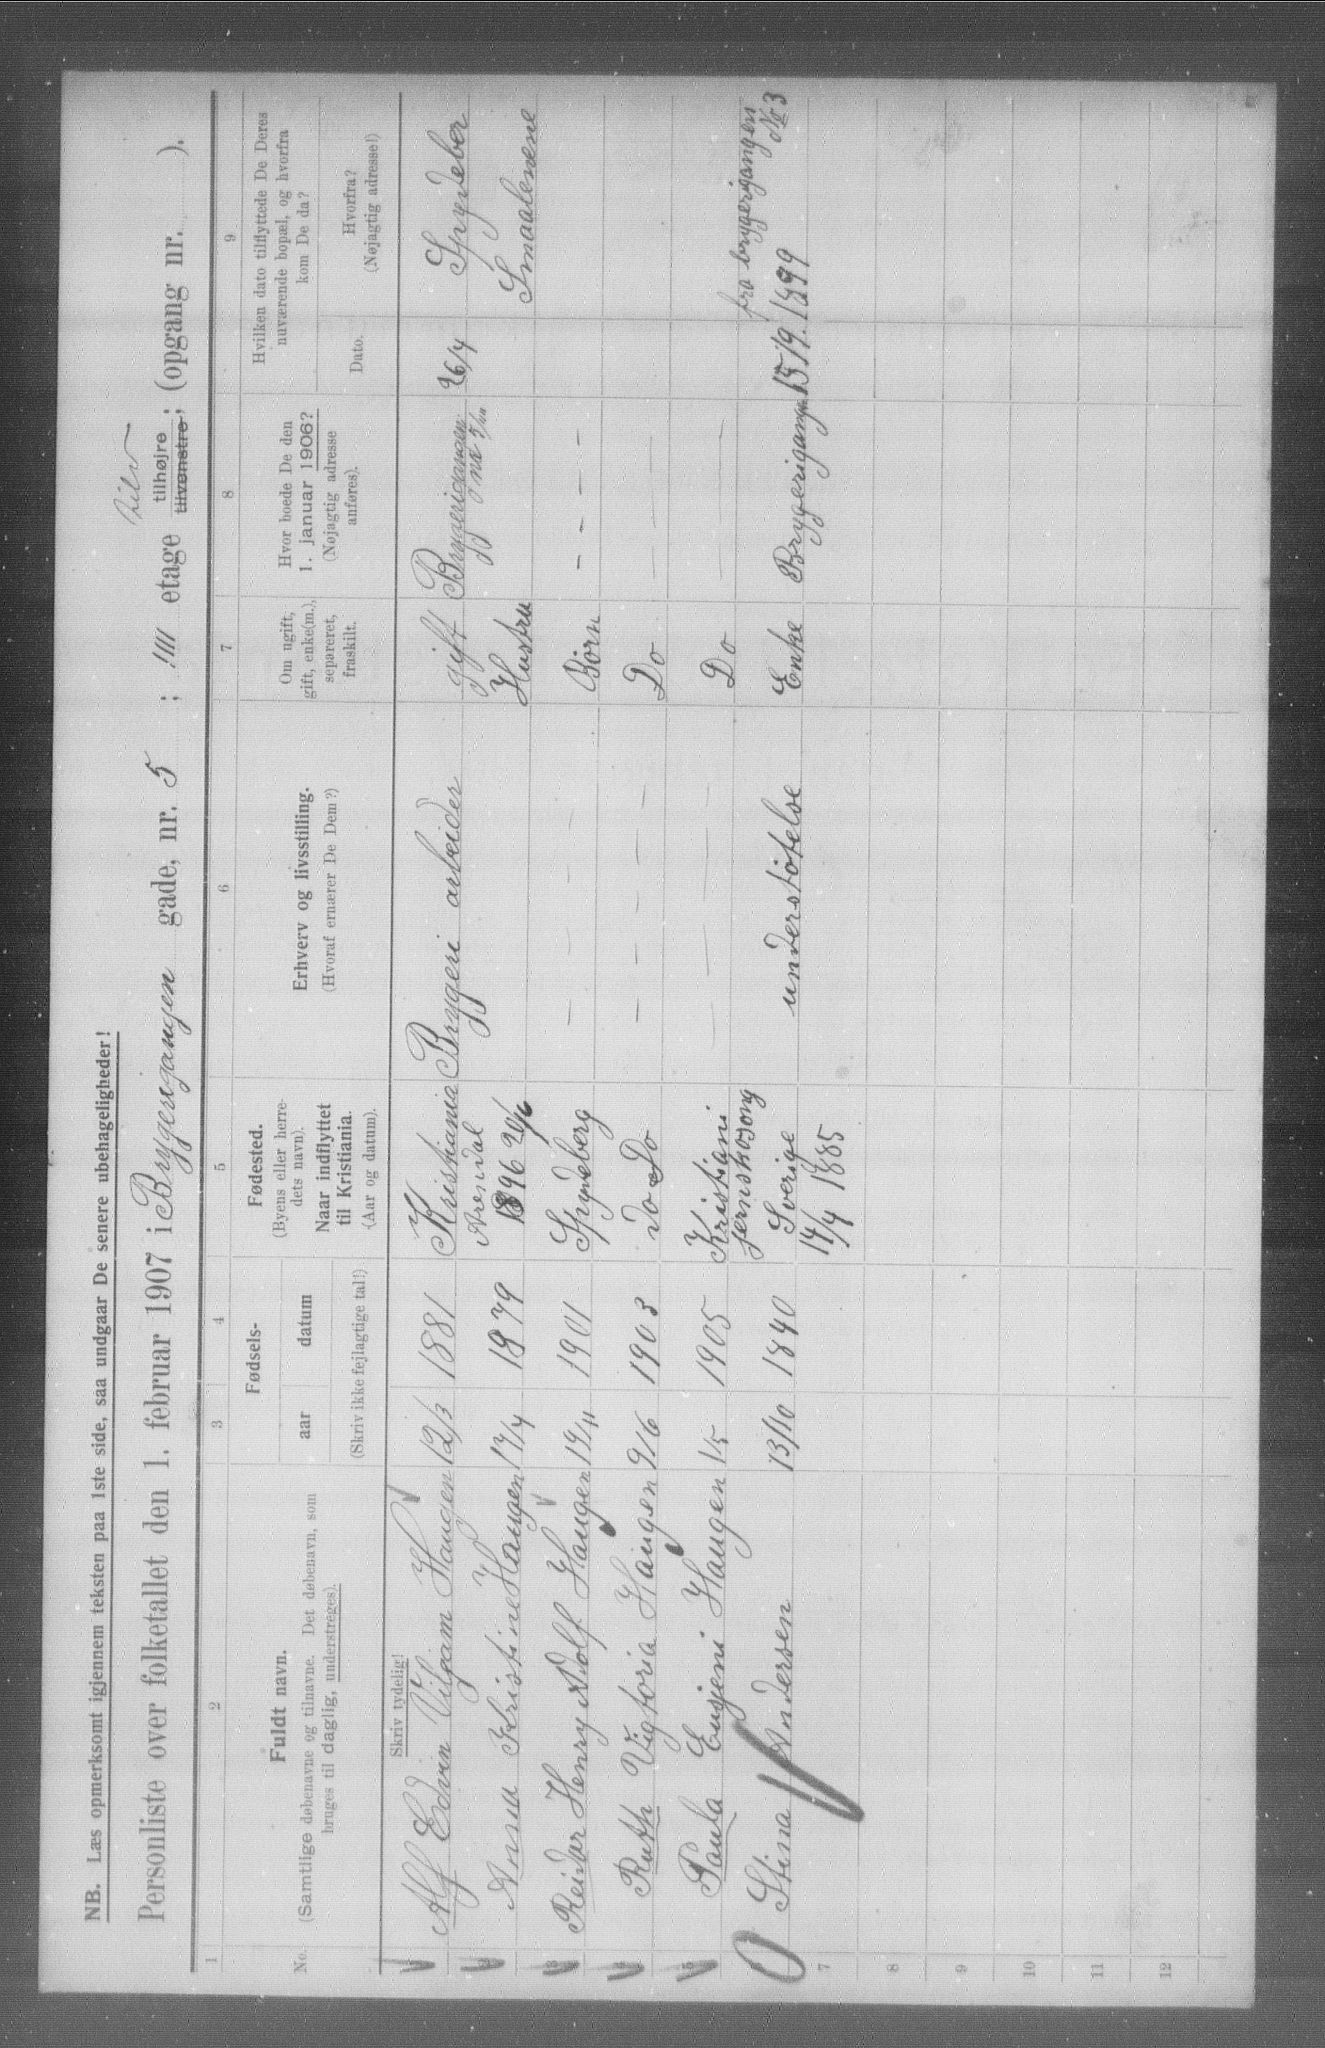 NB. Læs opmerksomt igjennem teksten paa 1ste side, saa undgaar De senere ubehageligheder!
Personliste over folketallet den 1. februar 1907 i Bryggerigangen gade, nr. 5 ; IIII etage tilhøjre tilvenstre; (opgang nr. ).
tilv
1 2 3 4 5 6 7 8 9
No.
Fuldt navn.
(Samtlige døbenavne og tilnavne. Det døbenavn, som
bruges til daglig, understreges).
Fødsels-
aar datum
(Skriv ikke fejlagtige tal!)
Fødested.
(Byens eller herre-
dets navn).
Naar indflyttet
til Kristiania.
(Aar og datum).
Erhverv og livsstilling.
(Hvoraf ernærer De Dem?)
Om ugift,
gift, enke(m.),
separeret,
fraskilt.
Hvor boede De den
1. januar 1906?
(Nøjagtig adresse
anføres).
Hvilken dato tilflyttede De Deres
nuværende bopæl, og hvorfra
kom De da?
Dato.
Hvorfra?
(Nøjagtig adresse!)
Skriv tydelig!
Alf Edvin Viljam Haugen 12/3 1881 Kristiania Bryggeri arbeider gift Bryggerigangen 26/4 Spydeber
Anna Kristine Haugen 17/4 1879 Arendal 1896 20/6 Hustru Smaalenene
Reidar Henry Adolf Haugen 19/11 1901 Spydeberg — — — — Børn - - - -
Ruth Vigtoria Haugen 9/6 1903 do Do — — — — Do — —
Paula Eusjeni Haugen 1/5 1905 Kristiani — — — — Do — —
Stina Andersen 13/10 1840 Sverige 14/4 1885 understøtelse Enke Bryggerigangen 15/9 1899 fra bryggerigangen No 3
7
8
9
10
11
12